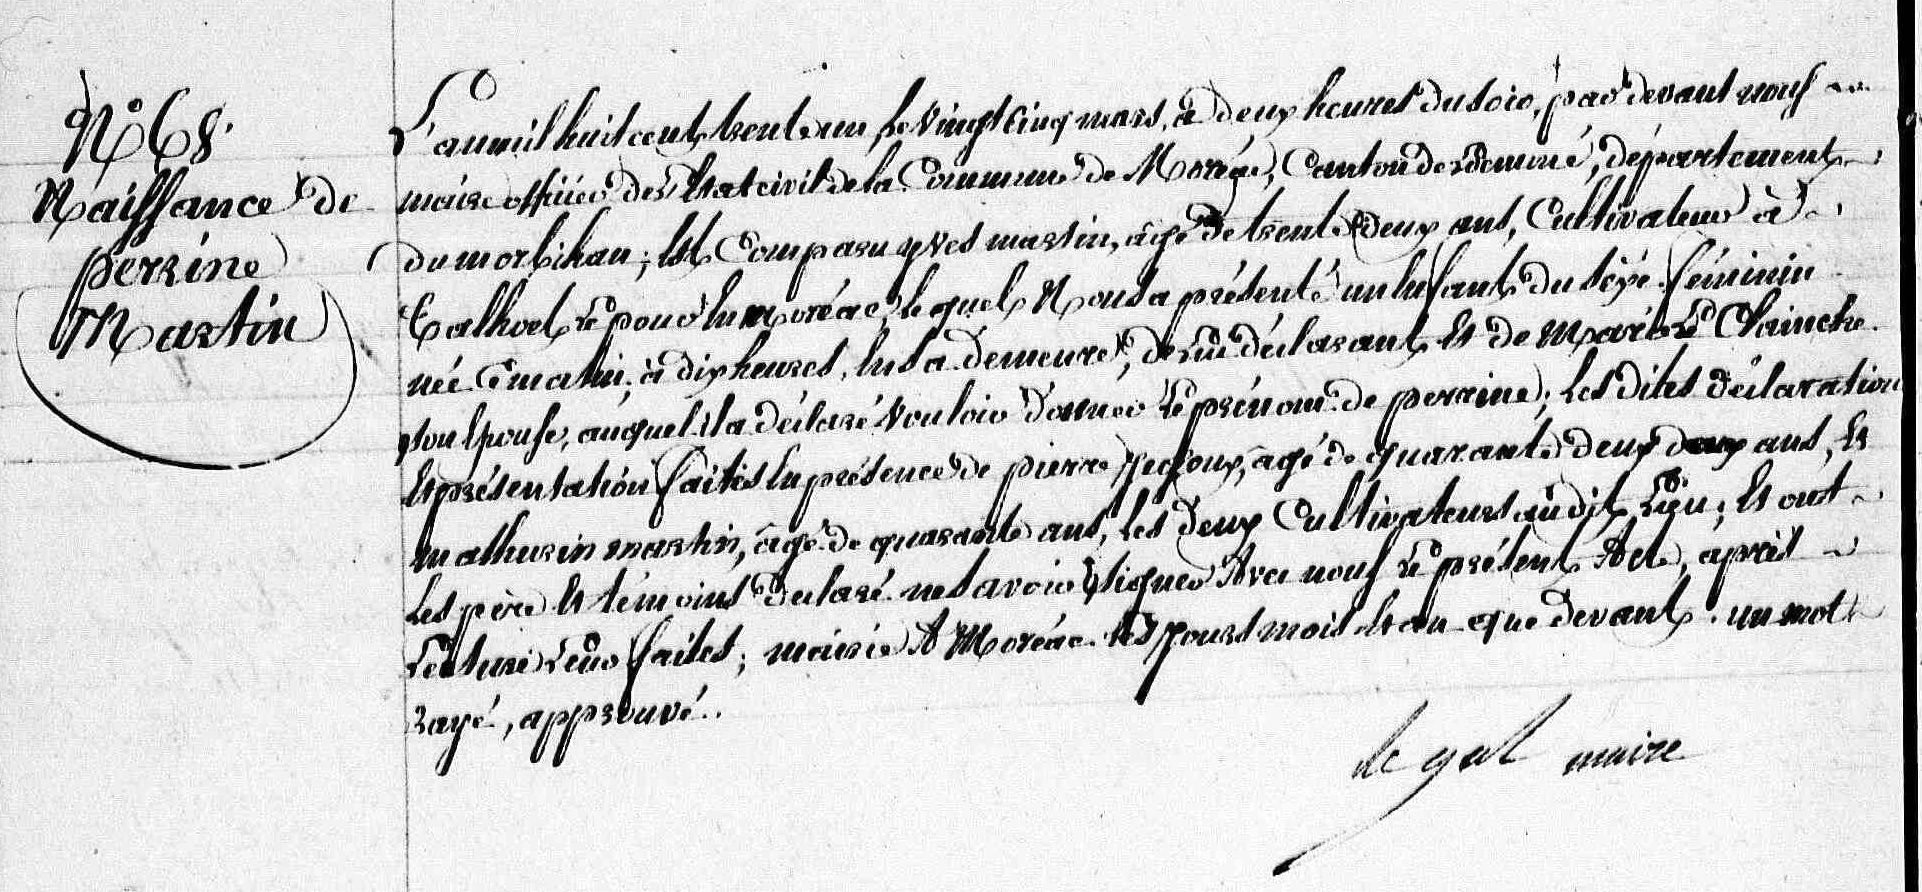 N.° 68.
Naissance de
perrine
Martin
L'an mil huit cent trente un, le vingt cinq mars, à deux heures du soir, par devant nous
maire officier de l'Etat civil de la Commune de Moréac, Canton de Locminé, département
du morbihan; Est Comparu yves martin, âgé de trente deux ans, Cultivateur à
Talhoet, en moréac, lequel Nous a présenté un Enfant du sexe féminin
née ce matin, à dix heures, En sa demeure, de lui déclarant Et de Marie Le Clainche
son Epouse, auquel il a déclaré vouloir donner le prénom de perrine; les dites déclaration
Et présentation faites En présence de pierre, âgé de quarante deux ans, Et
mathurin martin, âgé de quarante ans, les deux Cultivateurs au dit Lieu; Et ont
les père Et témoins déclaré ne savoir signer Avec nous le présent Acte, après
Lecture Leur faites; mairie A Moréac les jours mois Et an que devant. un mot
rayé, approuvé.
le gal maire